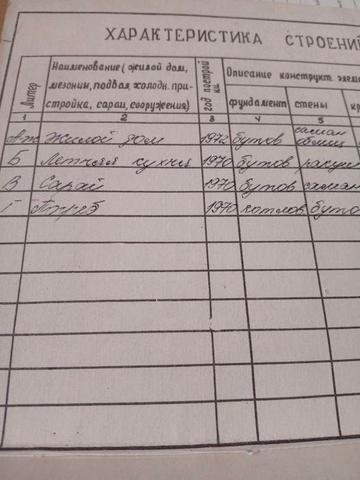 ХАРАКТЕРИСТИКА СТРОЕНИЙ
Литер
Наименование (жилой дом, мезонин, подвал, холодн. пристройка, сараи, сооружения)
год построй ки
Описание конструкт. элем
фундамент
стены
кр
1 2 3 4 5
Жилой дом 1972 бутов саман облиц
Б Летняя кухня 1970 бутов ракуш
В Сарай 1970 бутов саман
Г Погреб 1970 котлов буто